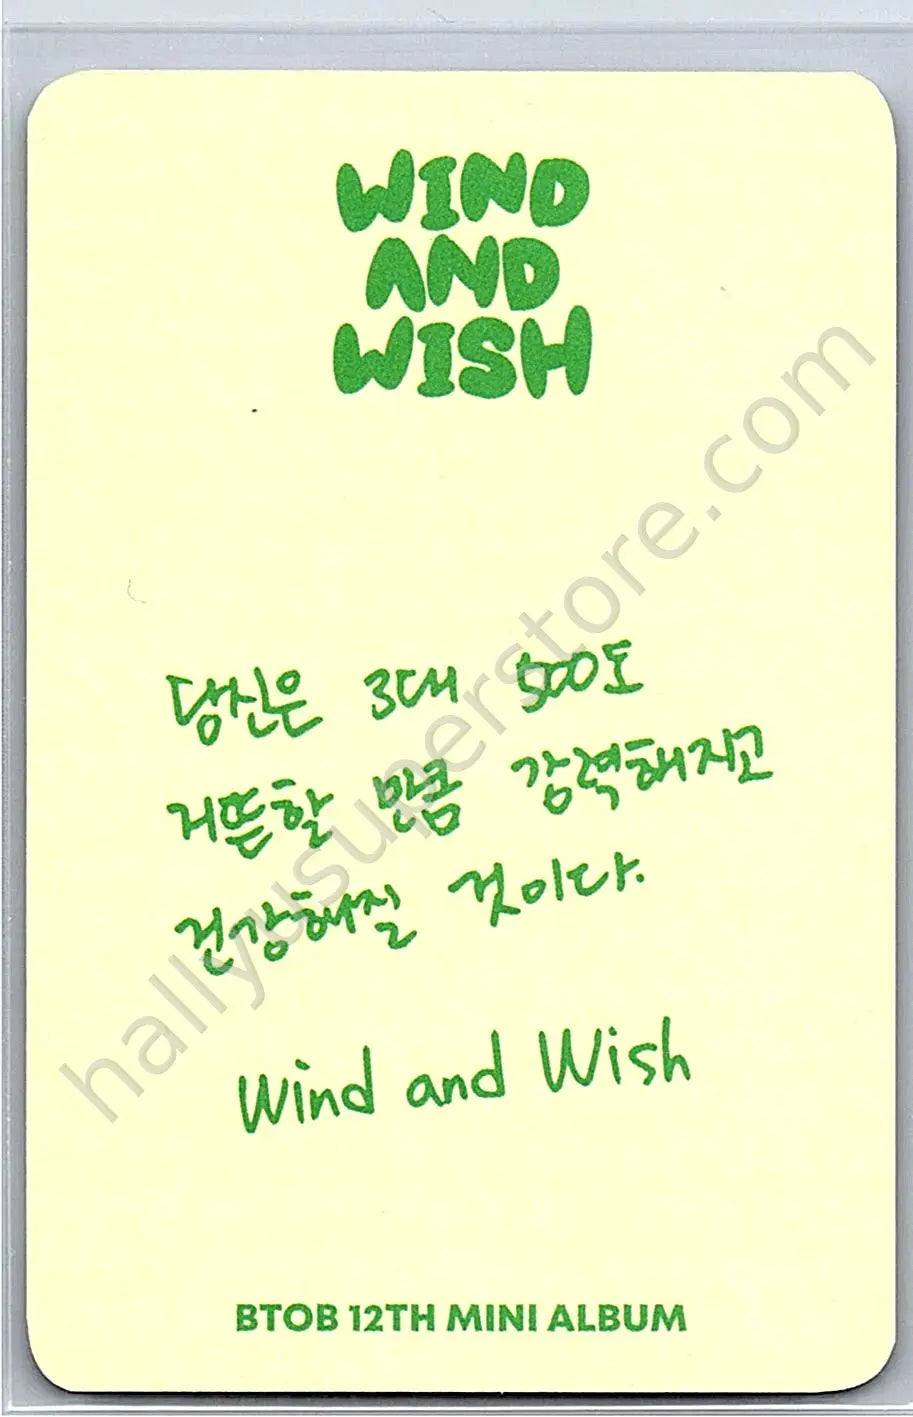 WIND
AND
WISH
당신은 3대 500도
거뜬할 만큼 강력해지고
건강해질 것이다.
Wind and Wish
BTOB 12TH MINI ALBUM
hallyusuperstore.com